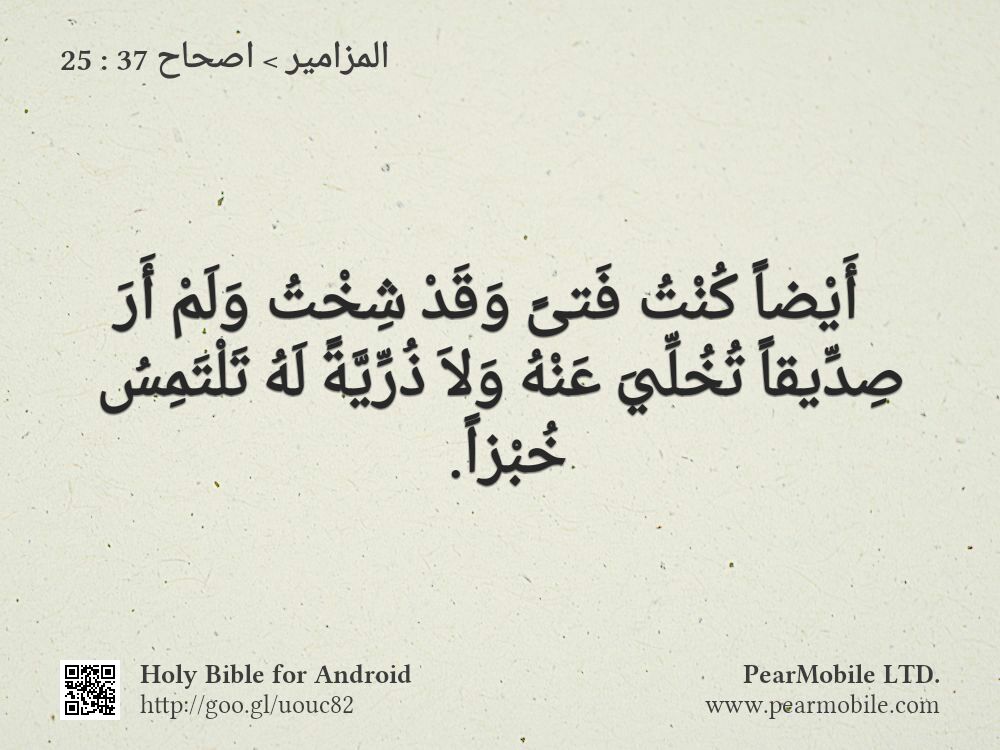 المزامير > اصحاح 37 : 25
أَيْضاً كُنْتُ فَتىً وَقَدْ شِخْتُ وَلَمْ أَرَ
صِدِّيقاً تُخُلِّيَ عَنْهُ وَلاَ ذُرِّيَّةً لَهُ تَلْتَمِسُ
خُبْزاً.
Holy Bible for Android
http://goo.gl/uouc82
PearMobile LTD.
www.pearmobile.com